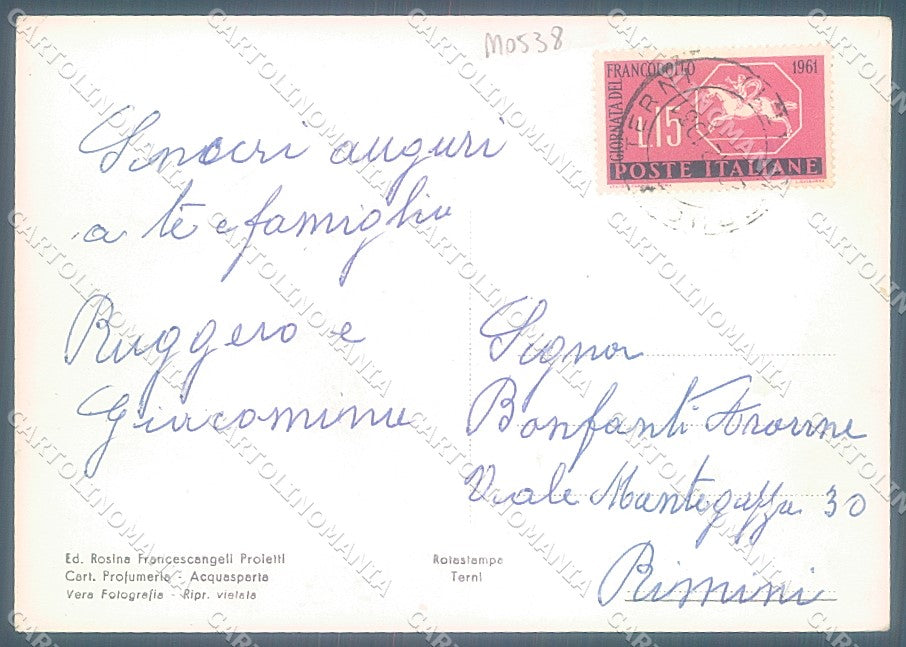 M0538
GIORNATA DEL FRANCOBOLLO 1961
L.15
POSTE ITALIANE
TERNI
Sinceri auguri
a te e famiglia
Ruggero e
Giacomina
Signor
Bonfanti
Viale Mantegazza 30
Rimini
Ed. Rosina Francescangeli Proietti
Cart. Profumeria - Acquasparta
Vera Fotografia - Ripr. vietata
Rotastampa
Terni
CARTOLINOMANIA